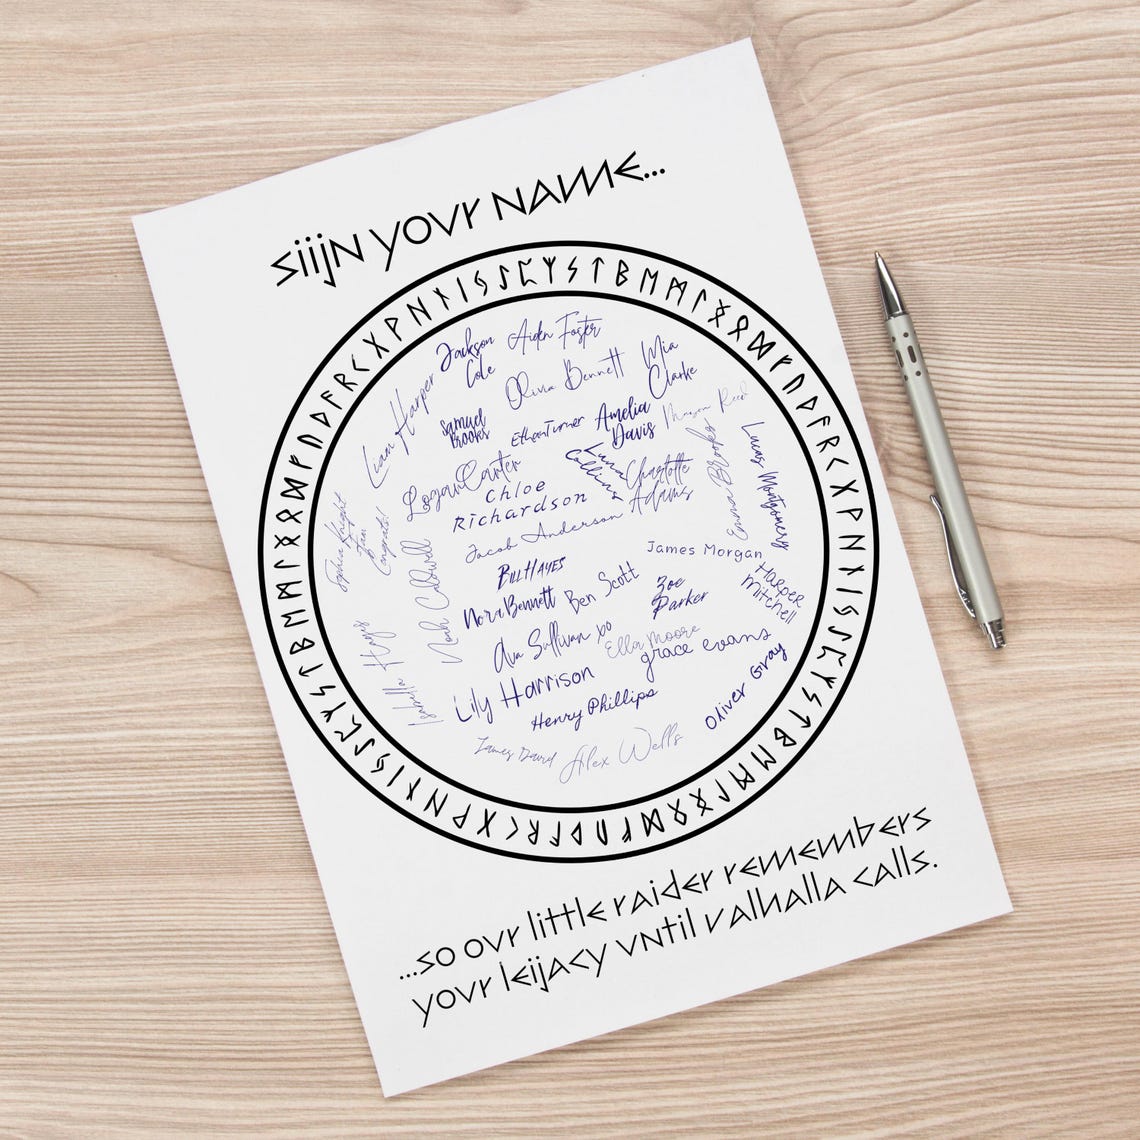 siijn yovr name...
ᚠᚢᚦᚨᚱᚲᚷᚹᚺᚾᛁᛃᛇᛈᛉᛊᛏᛒᛖᛗᛚᛝᛟᛞᚠᚢᚦᚨᚱᚲᚷᚹᚺᚾᛁᛃᛇᛈᛉᛊᛏᛒᛖᛗᛚᛝᛟᛞᚠᚢᚦᚨᚱᚲᚷᚹᚺᚾᛁᛃᛇᛈᛉᛊᛏᛒᛖᛗᛚᛝᛟᛞ
Jackson
Cole
Aiden Foster
Mia
Clarke
Olivia Bennett
Liam Harper
Samuel
Brooks
Ethan Turner
Amelia
Davis
Mason Reed
Logan Carter
Luna
Collins
Charlotte
Adams
Emma Brooks
Lucas Montgomery
Chloe
Richardson
Sophia Knight
Congrats!
Jacob Anderson
James Morgan
Bill Hayes
Noah Caldwell
Ben Scott
Zoe
Parker
Harper
Mitchell
Nora Bennett
Ava Sullivan xo
Ella Moore
grace evans
Isabella Hayes
Lily Harrison
Henry Phillips
Oliver Gray
James David
Alex Wells
...so ovr little raider remembers
yovr leijacy vntil valhalla calls.